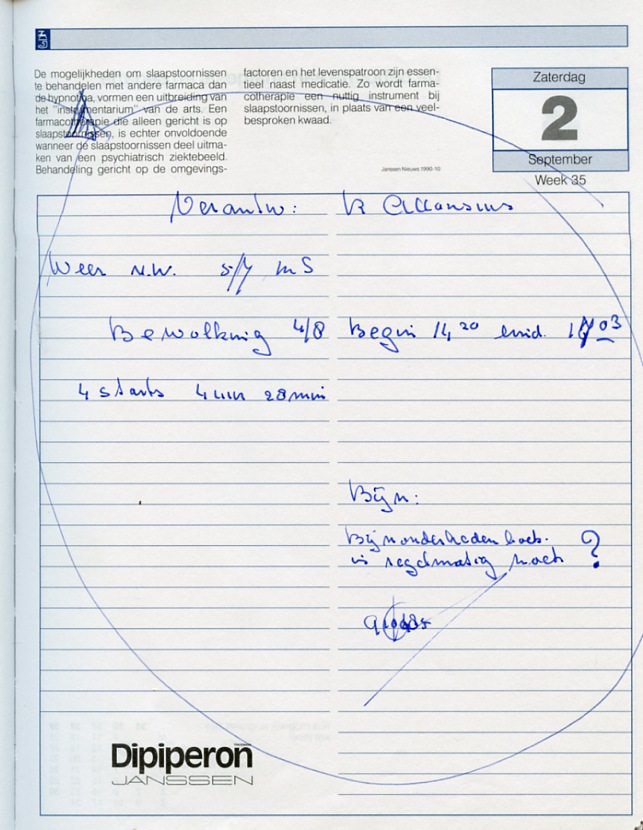 De mogelijkheden om slaapstoornissen
te behandelen met andere farmaca dan
de hypnotica, vormen een uitbreiding van
het "instrumentarium" van de arts. Een
farmacotherapie die alleen gericht is op
slaapstoornissen, is echter onvoldoende
wanneer de slaapstoornissen deel uitma-
ken van een psychiatrisch ziektebeeld.
Behandeling gericht op de omgevings-
factoren en het levenspatroon zijn essen-
tieel naast medicatie. Zo wordt farma-
cotherapie een nuttig instrument bij
slaapstoornissen, in plaats van een veel-
besproken kwaad.
Janssen Nieuws 1990-10
Zaterdag
2
September
Week 35
Verantw:
Weer N.W. 5/7 mS
Bewolking 4/8 Begin 14,20 eind.
4 starts 4 uur 28 min
Bijz:
Bijzonderheden
is regelmatig zoek ?
Dipiperon
JANSSEN